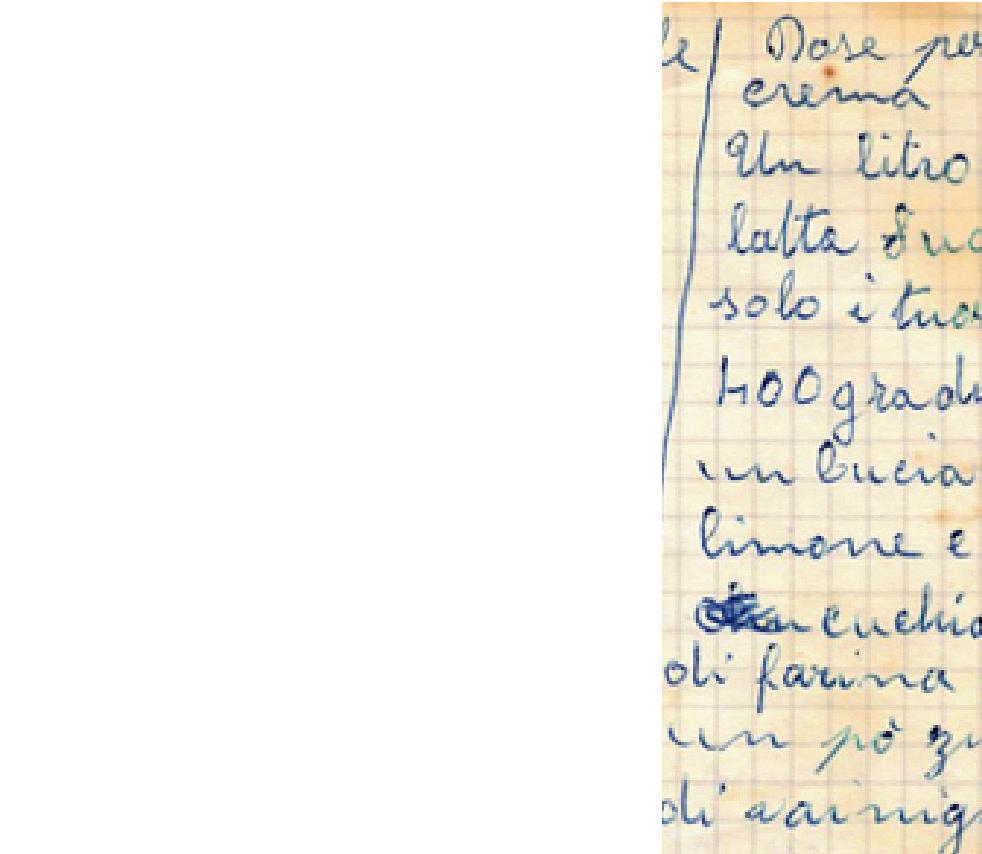 le
Dose per
crema
Un litro
latta due
solo i tuor
400 gradi
un bucia
limone e
cuchia
di farina
un pò zu
di vainig